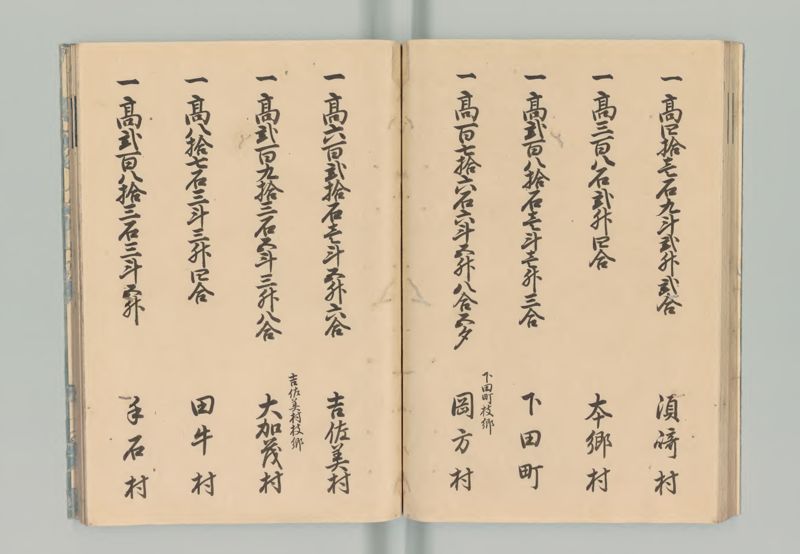 一高四拾壱石九斗弐升弐合 須崎村
一高三百八石弐升四合 本郷村
一高弐百八拾石壱斗壱升三合 下田町
下田町枝郷
一高百七拾六石六斗五升八合五夕 岡方村
一高六百弐拾石壱斗五升六合 吉佐美村
吉佐美村枝郷
一高弐百九拾三石五斗三升八合 大加茂村
一高八拾七石三斗三升四合 田牛村
一高弐百八拾三石三斗五升 手石村